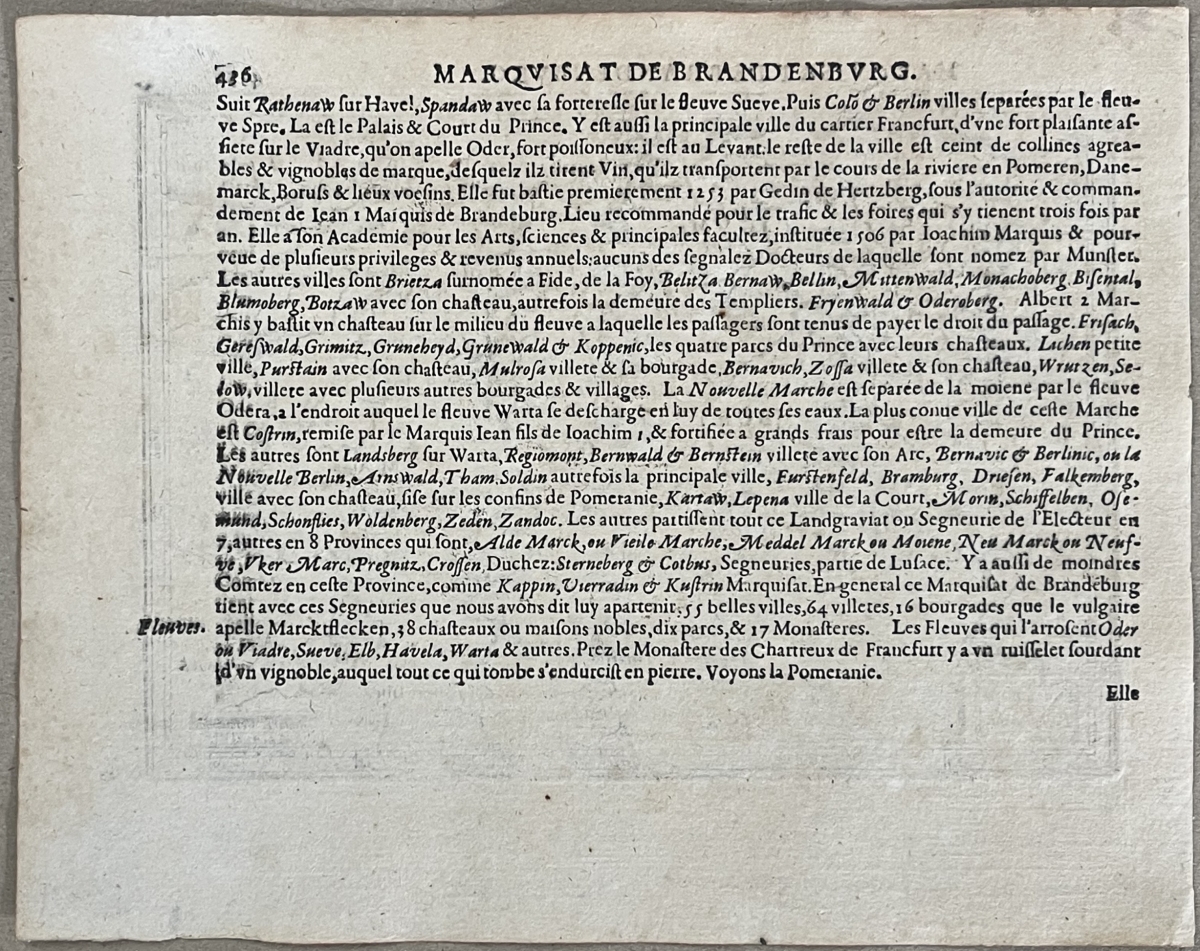 436 MARQVISAT DE BRANDENBVRG.
Suit Rathenaw ſur Havel, Spandaw avec ſa forterelle ſur le fleuve Sueve. Puis Colō & Berlin villes ſeparées par le fleu-
ve Spre. La eſt le Palais & Court du Prince. Y eſt auſſi la principale ville du cartier Francfurt, d'vne fort plaiſante aſ-
ſiete ſur le Viadre, qu'on apelle Oder, fort poiſſoneux: il eſt au Levant. le reſte de la ville eſt ceint de collines agrea-
bles & vignobles de marque, deſquelz ilz tirent Vin, qu'ilz tranſportent par le cours de la riviere en Pomeren, Dane-
marck, Boruſs & lieux voeſins. Elle fut baſtie premierement 1253 par Gedin de Hertzberg, ſous l'autorité & comman-
dement de Iean 1 Marquis de Brandeburg. Lieu recommandé pour le trafic & les foires qui s'y tienent trois fois par
an. Elle a ſon Academie pour les Arts, ſciences & principales facultez, inſtituée 1506 par Ioachim Marquis & pour-
veue de pluſieurs privileges & revenus annuels: aucuns des ſegnalez Docteurs de laquelle ſont nomez par Munſter.
Les autres villes ſont Brietza ſurnomée a Fide, de la Foy, Belitza Bernaw, Bellin, Mittenwald, Monachoberg. Biſental,
Blumoberg, Botzaw avec ſon chaſteau, autrefois la demeure des Templiers. Fryenwald & Oderoberg. Albert 2 Mar-
chis y baſtit vn chaſteau ſur le milieu du fleuve a laquelle les paſſagers ſont tenus de payer le droit du paſſage. Friſach,
Gereſwald, Grimitz, Gruneheyd, Grunewald & Koppenic, les quatre parcs du Prince avec leurs chaſteaux. Lichen petite
ville, Purſtain avec ſon chaſteau, Mulroſa villete & ſa bourgade, Bernavich, Zoſſa villete & ſon chaſteau, Wrutzen, Se-
low, villete avec pluſieurs autres bourgades & villages. La Nouvelle Marche eſt ſeparée de la moiene par le fleuve
Odera, a l'endroit auquel le fleuve Warta ſe deſcharge en luy de toutes ſes eaux. La plus conue ville de ceſte Marche
eſt Coſtrin, remiſe par le Marquis Iean fils de Ioachim 1, & fortifiée a grands frais pour eſtre la demeure du Prince.
Les autres ſont Landsberg ſur Warta, Regiomont, Bernwald & Bernſtein villete avec ſon Arc, Bernavic & Berlinic, ou la
Nouvelle Berlin, Arnswald, Tham. Soldin autrefois la principale ville, Furſtenfeld, Bramburg, Drieſen, Falkemberg,
ville avec ſon chaſteau, ſiſe ſur les confins de Pomeranie, Kartaw, Lepena ville de la Court, Morin, Schiffelben, Oſe-
mund, Schonflies, Woldenberg, Zeden, Zandoc. Les autres partiſſent tout ce Landgraviat ou Segneurie de l'Electeur en
7, autres en 8 Provinces qui ſont, Alde Marck, ou Vieile Marche, Meddel Marck ou Moiene, Neu Marck ou Neuf-
ve, Vker Marc, Pregnitz, Croſſen, Duchez: Sterneberg & Cotbus, Segneuries, partie de Luſace. Y a auſſi de moindres
Comtez en ceſte Province, comme Kappin, Vierradin & Kuſtrin Marquiſat. En general ce Marquiſat de Brandeburg
tient avec ces Segneuries que nous avons dit luy apartenir, 55 belles villes, 64 villetes, 16 bourgades que le vulgaire
Fleuves. apelle Marcktflecken, 38 chaſteaux ou maiſons nobles, dix parcs, & 17 Monaſteres. Les Fleuves qui l'arroſent Oder
ou Viadre, Sueve, Elb, Havela, Warta & autres. Prez le Monaſtere des Chartreux de Francfurt y a vn ruiſſelet ſourdant
d'vn vignoble, auquel tout ce qui tombe s'endurciſt en pierre. Voyons la Pomeranie.
Elle